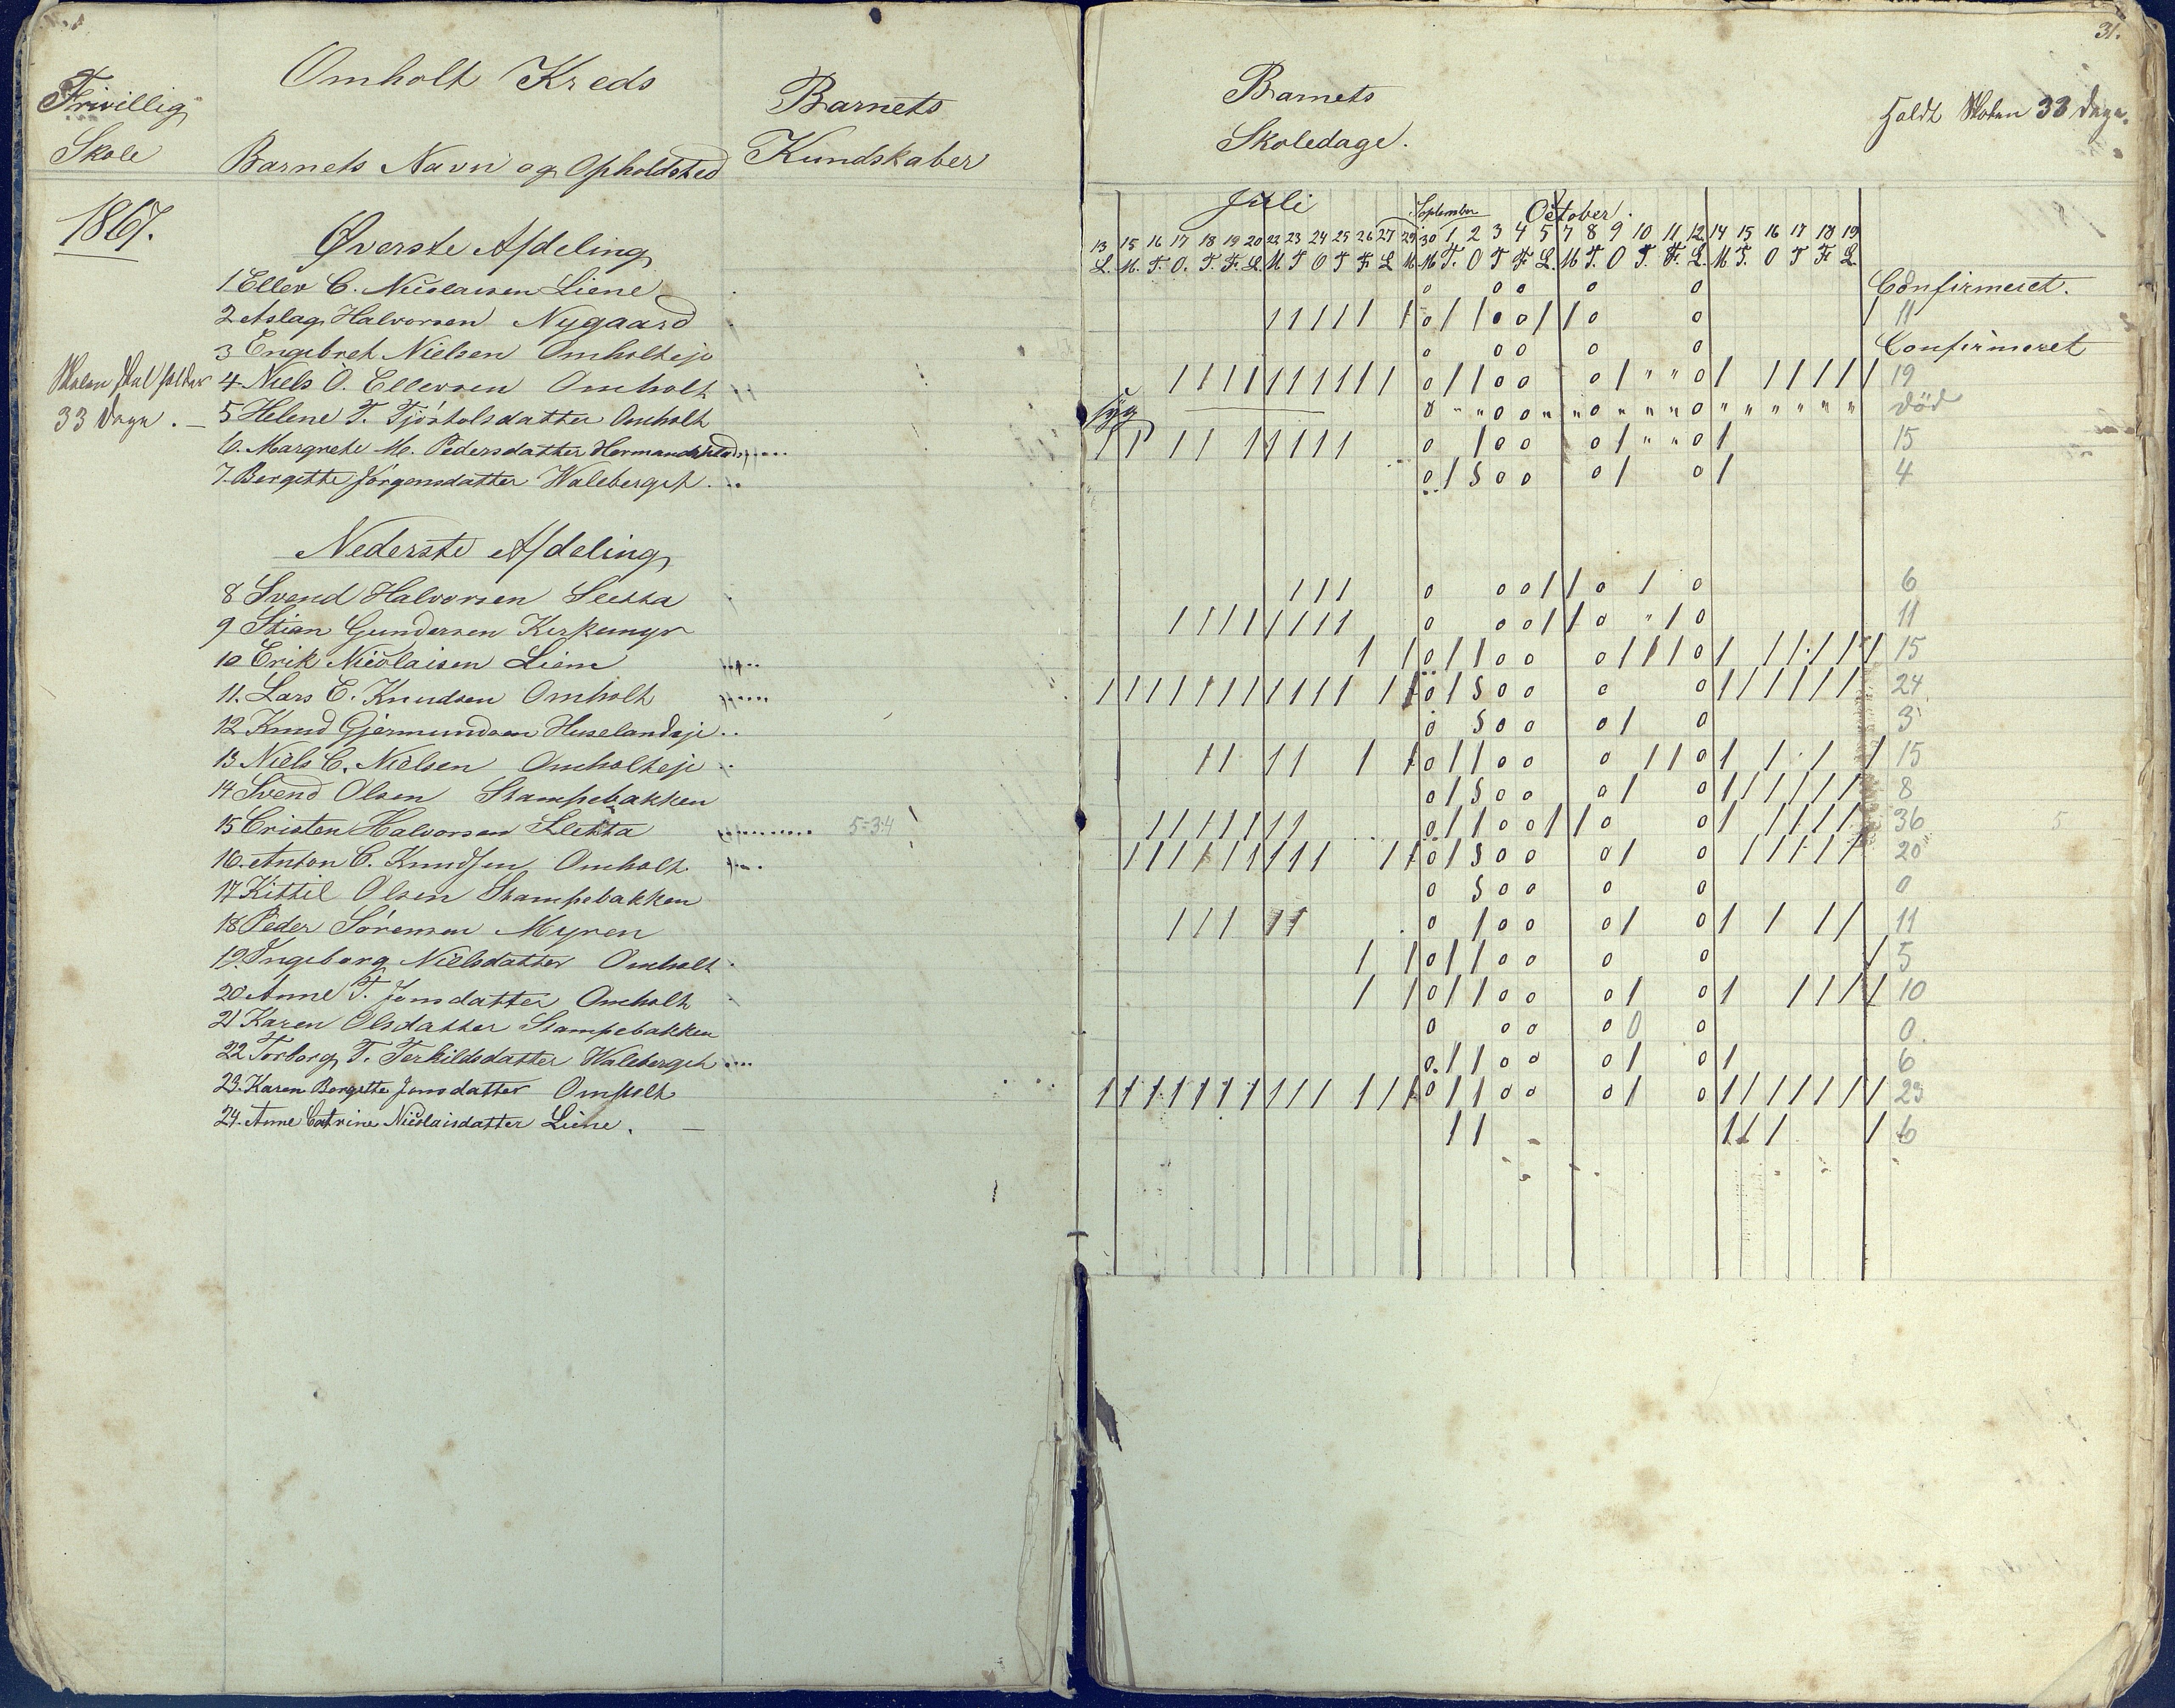 31.
Frivillig
Skole
Omholt Kreds
Barnets Navn og Opholdsted
Barnets
Kundskaber
Barnets
Skoledage.
holdt Skolen 33 Dage.
1867.
Skolen skal holdes
33 Dage.
Juli September October.
13 15 16 17 18 19 20 22 23 24 25 26 27 29 30 1 2 3 4 5 7 8 9 10 11 12 14 15 16 17 18 19
L. M. T. O. T. F. L. M T O T F L M M T. O T F L. M T. O T. F. L. M T. O T F L.
Øverste Afdeling
1 Ellev C. Nicolaisen Liene Confirmeret.
2 Aslag Halvorsen Nygaard 11
3 Engebret Nielsen Omholteje Confirmeret
4 Niels O. Ellevsen Omholt 19
5 Helene T. Tjöstolsdatter Omholt syg död
6. Margrete M. Pedersdatter 15
7. Bergitte Jörgensdatter Waleberget 4
Nederste Afdeling
8 Svend Halvorsen Sletta 6
9 Stian Gundersen Kirkemyr 11
10 Erik Nicolaisen Liene 15
11. Lars C. Knudsen Omholt 24
12 Knud Gjermundsen Huselandseje 3
13 Niels C. Nielsen Omholteje 15
14 Svend Olsen Stampebakken 8
15 Cristen Halvorsen Sletta 5=3:4 36
16. Anton C. Knudsen Omholt 20
17 Kittil Olsen Stampebakken 0
18 Peder Sörensen Myren 11
19. Ingeborg Nielsdatter Omholt 5
20 Anne T. Jonsdatter Omholt 10
21 Karen Olsdatter Stampebakken 0
22 Torborg T. Terkildsdatter Waleberget 6
23. Karen Bergitte Jonsdatter Omholt 23
24. Anne Catrine Nicolaisdatter Liene. 6